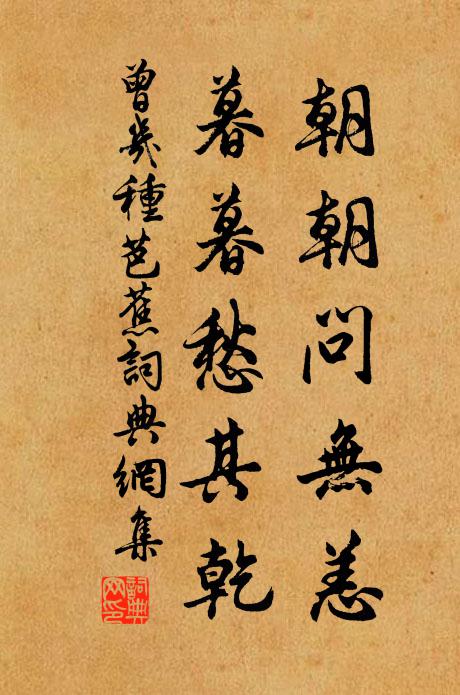 朝朝問無恙
暮暮愁其乾
曾幾種芭蕉詞典網集
詞典
网印